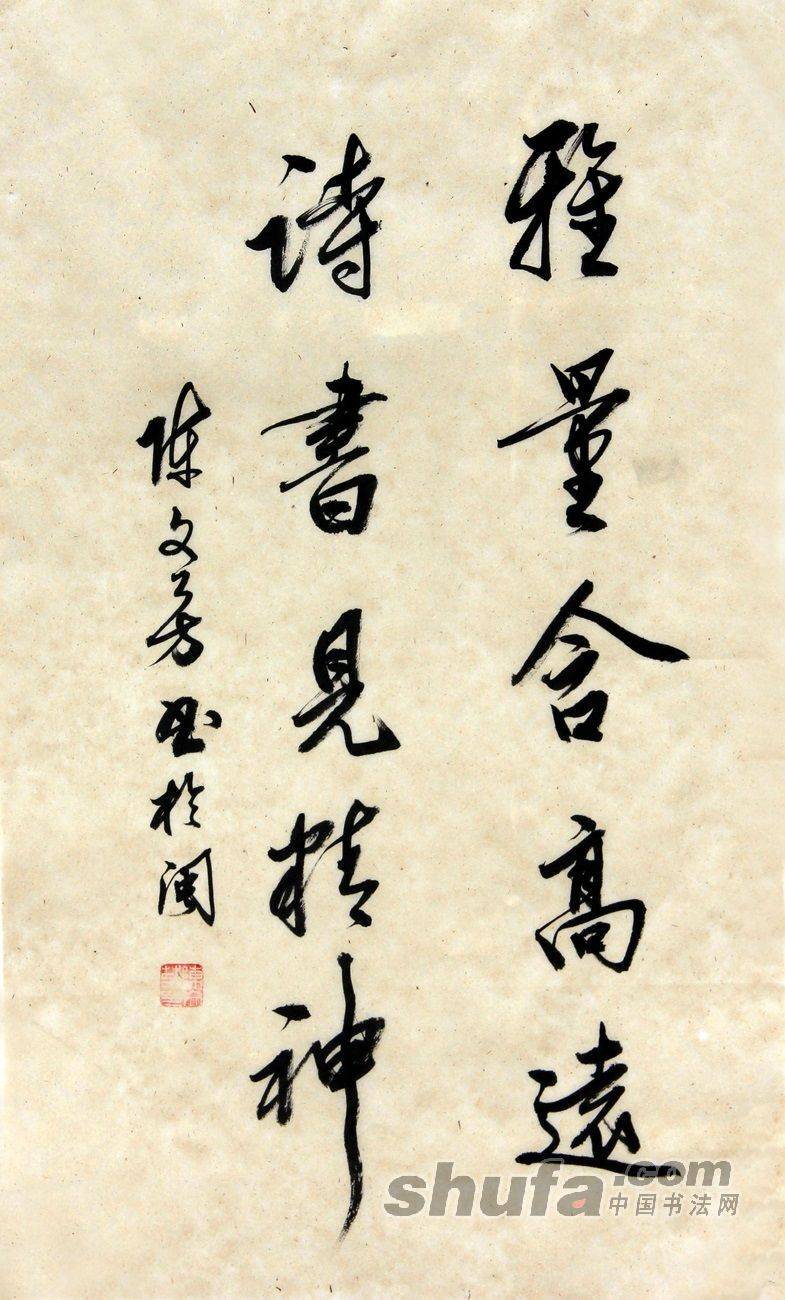 雅量含高遠
詩書見精神
陈文芳书於闽
shufa.com
中国书法网